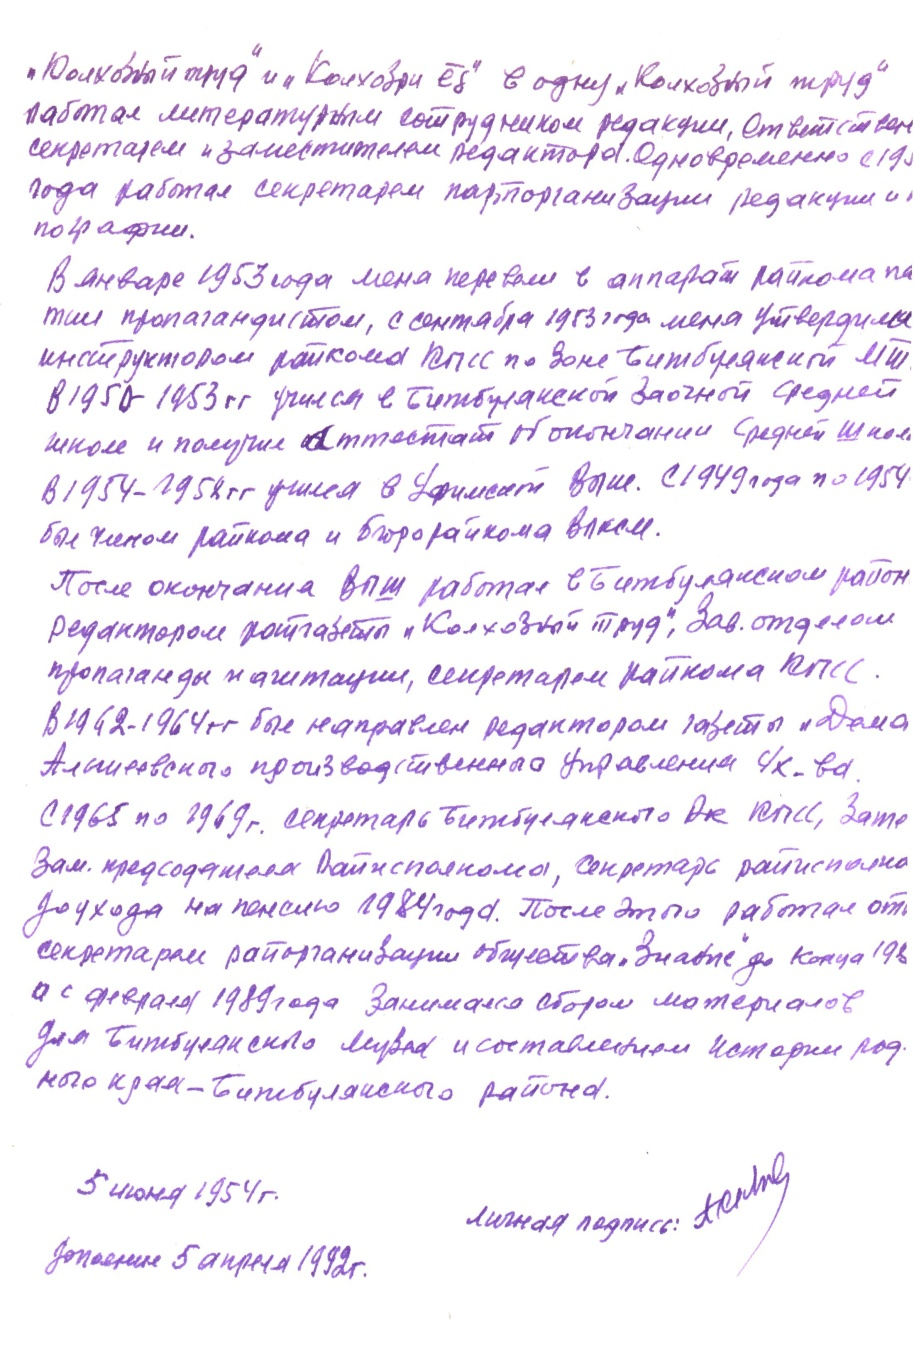 „Колхозный труд" и „Колхозри ĕҫ" в одну „Колхозный труд"
работал литературным сотрудником редакции, Ответствен
секретарем и заместителем редактора. Одновременно с 195
года работал секретарем парторганизации редакции и
пографии.
В январе 1953 года меня перевели в аппарат райкома па
тии пропагандистом, с сентября 1953 года меня утвердили
инструктором райкома КПСС по зоне Бижбулякской МТ
В 1950-1953 гг учился в Бижбулякской Заочной Средней
школе и получил Аттестат об окончании Средней школ
В 1954-1958 гг учился в Уфимской ВПШ. С 1949 года по 1954
был членом райкома и бюро райкома ВЛКСМ.
После окончания ВПШ работал в Бижбулякском район
редактором райгазеты „Колхозный труд", Зав. отделом
пропаганды и агитации, секретарем райкома КПСС.
В 1962-1964 гг был направлен редактором газеты „Дема
Альшеевского производственного управления с/х-ва.
С 1965 по 1969 г. секретарь Бижбулякского РК КПСС, Зате
Зам. председателя Райисполкома, секретарь райисполко
до ухода на пенсию 1984 года. После этого работал отв
секретарем райорганизации общества „Знание" до конца 198
а с февраля 1989 года Занимаюсь сбором материалов
для Бижбулякского Музея и составлением истории род-
ного края – Бижбулякского района.
5 июня 1954 г.
личная подпись:
дополнение 5 апреля 1992 г.